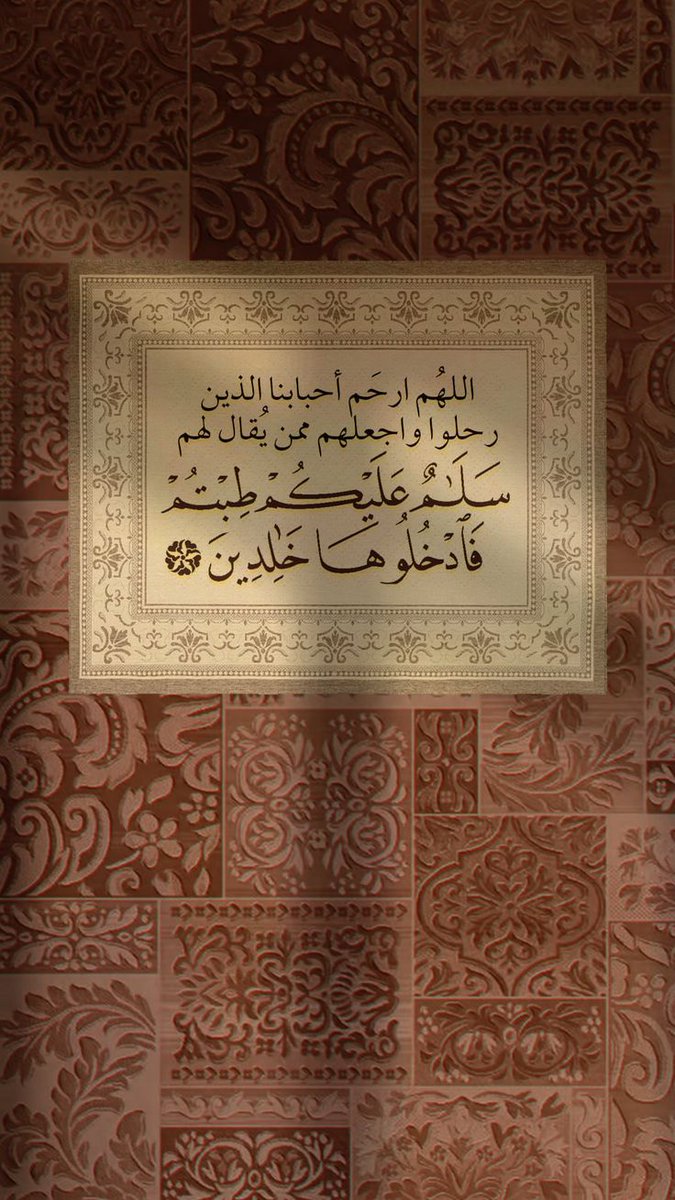 اللهُم ارحَم أحبابنا الذين
رحلوا واجعلهم ممن يُقال لهم
سَلَـٰمٌ عَلَيْكُمْ طِبْتُمْ
فَٱدْخُلُوهَا خَـٰلِدِينَ